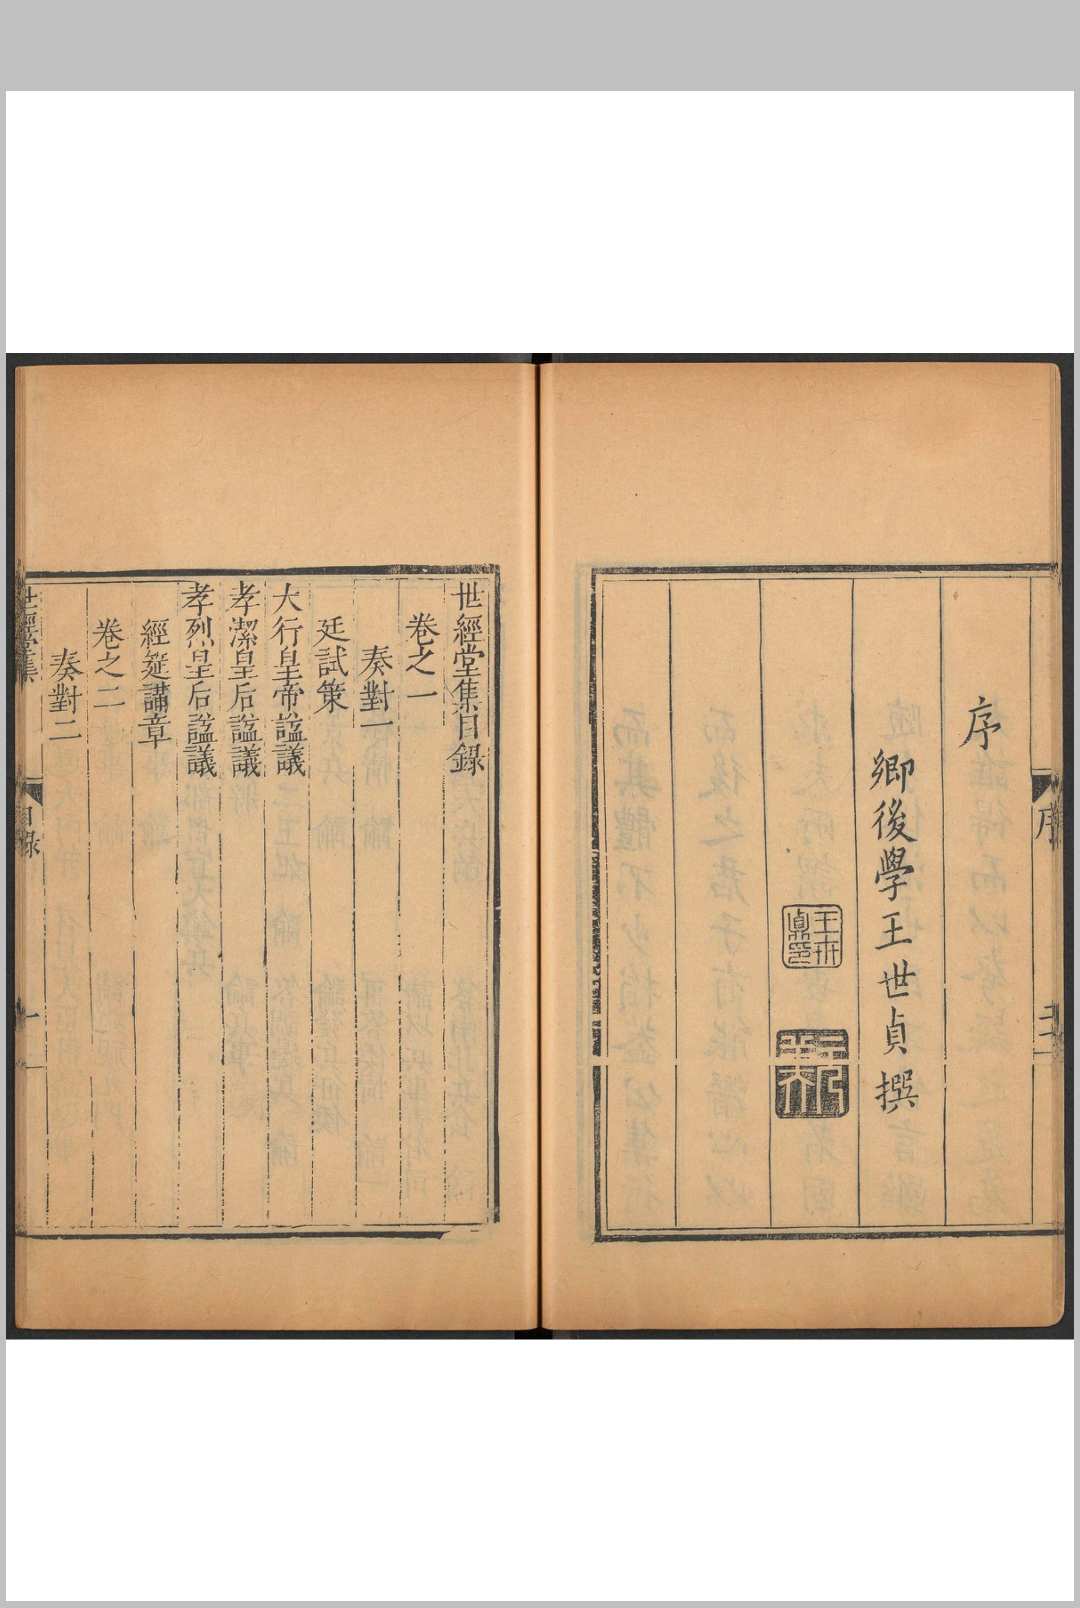 序
鄉後學王世貞撰
王世貞印
序
世經堂集目錄
卷之一
奏對一
廷試策
大行皇帝諡議
孝潔皇后諡議
孝烈皇后諡議
經筵講章
卷之二
奏對二
世經堂集
目錄
一